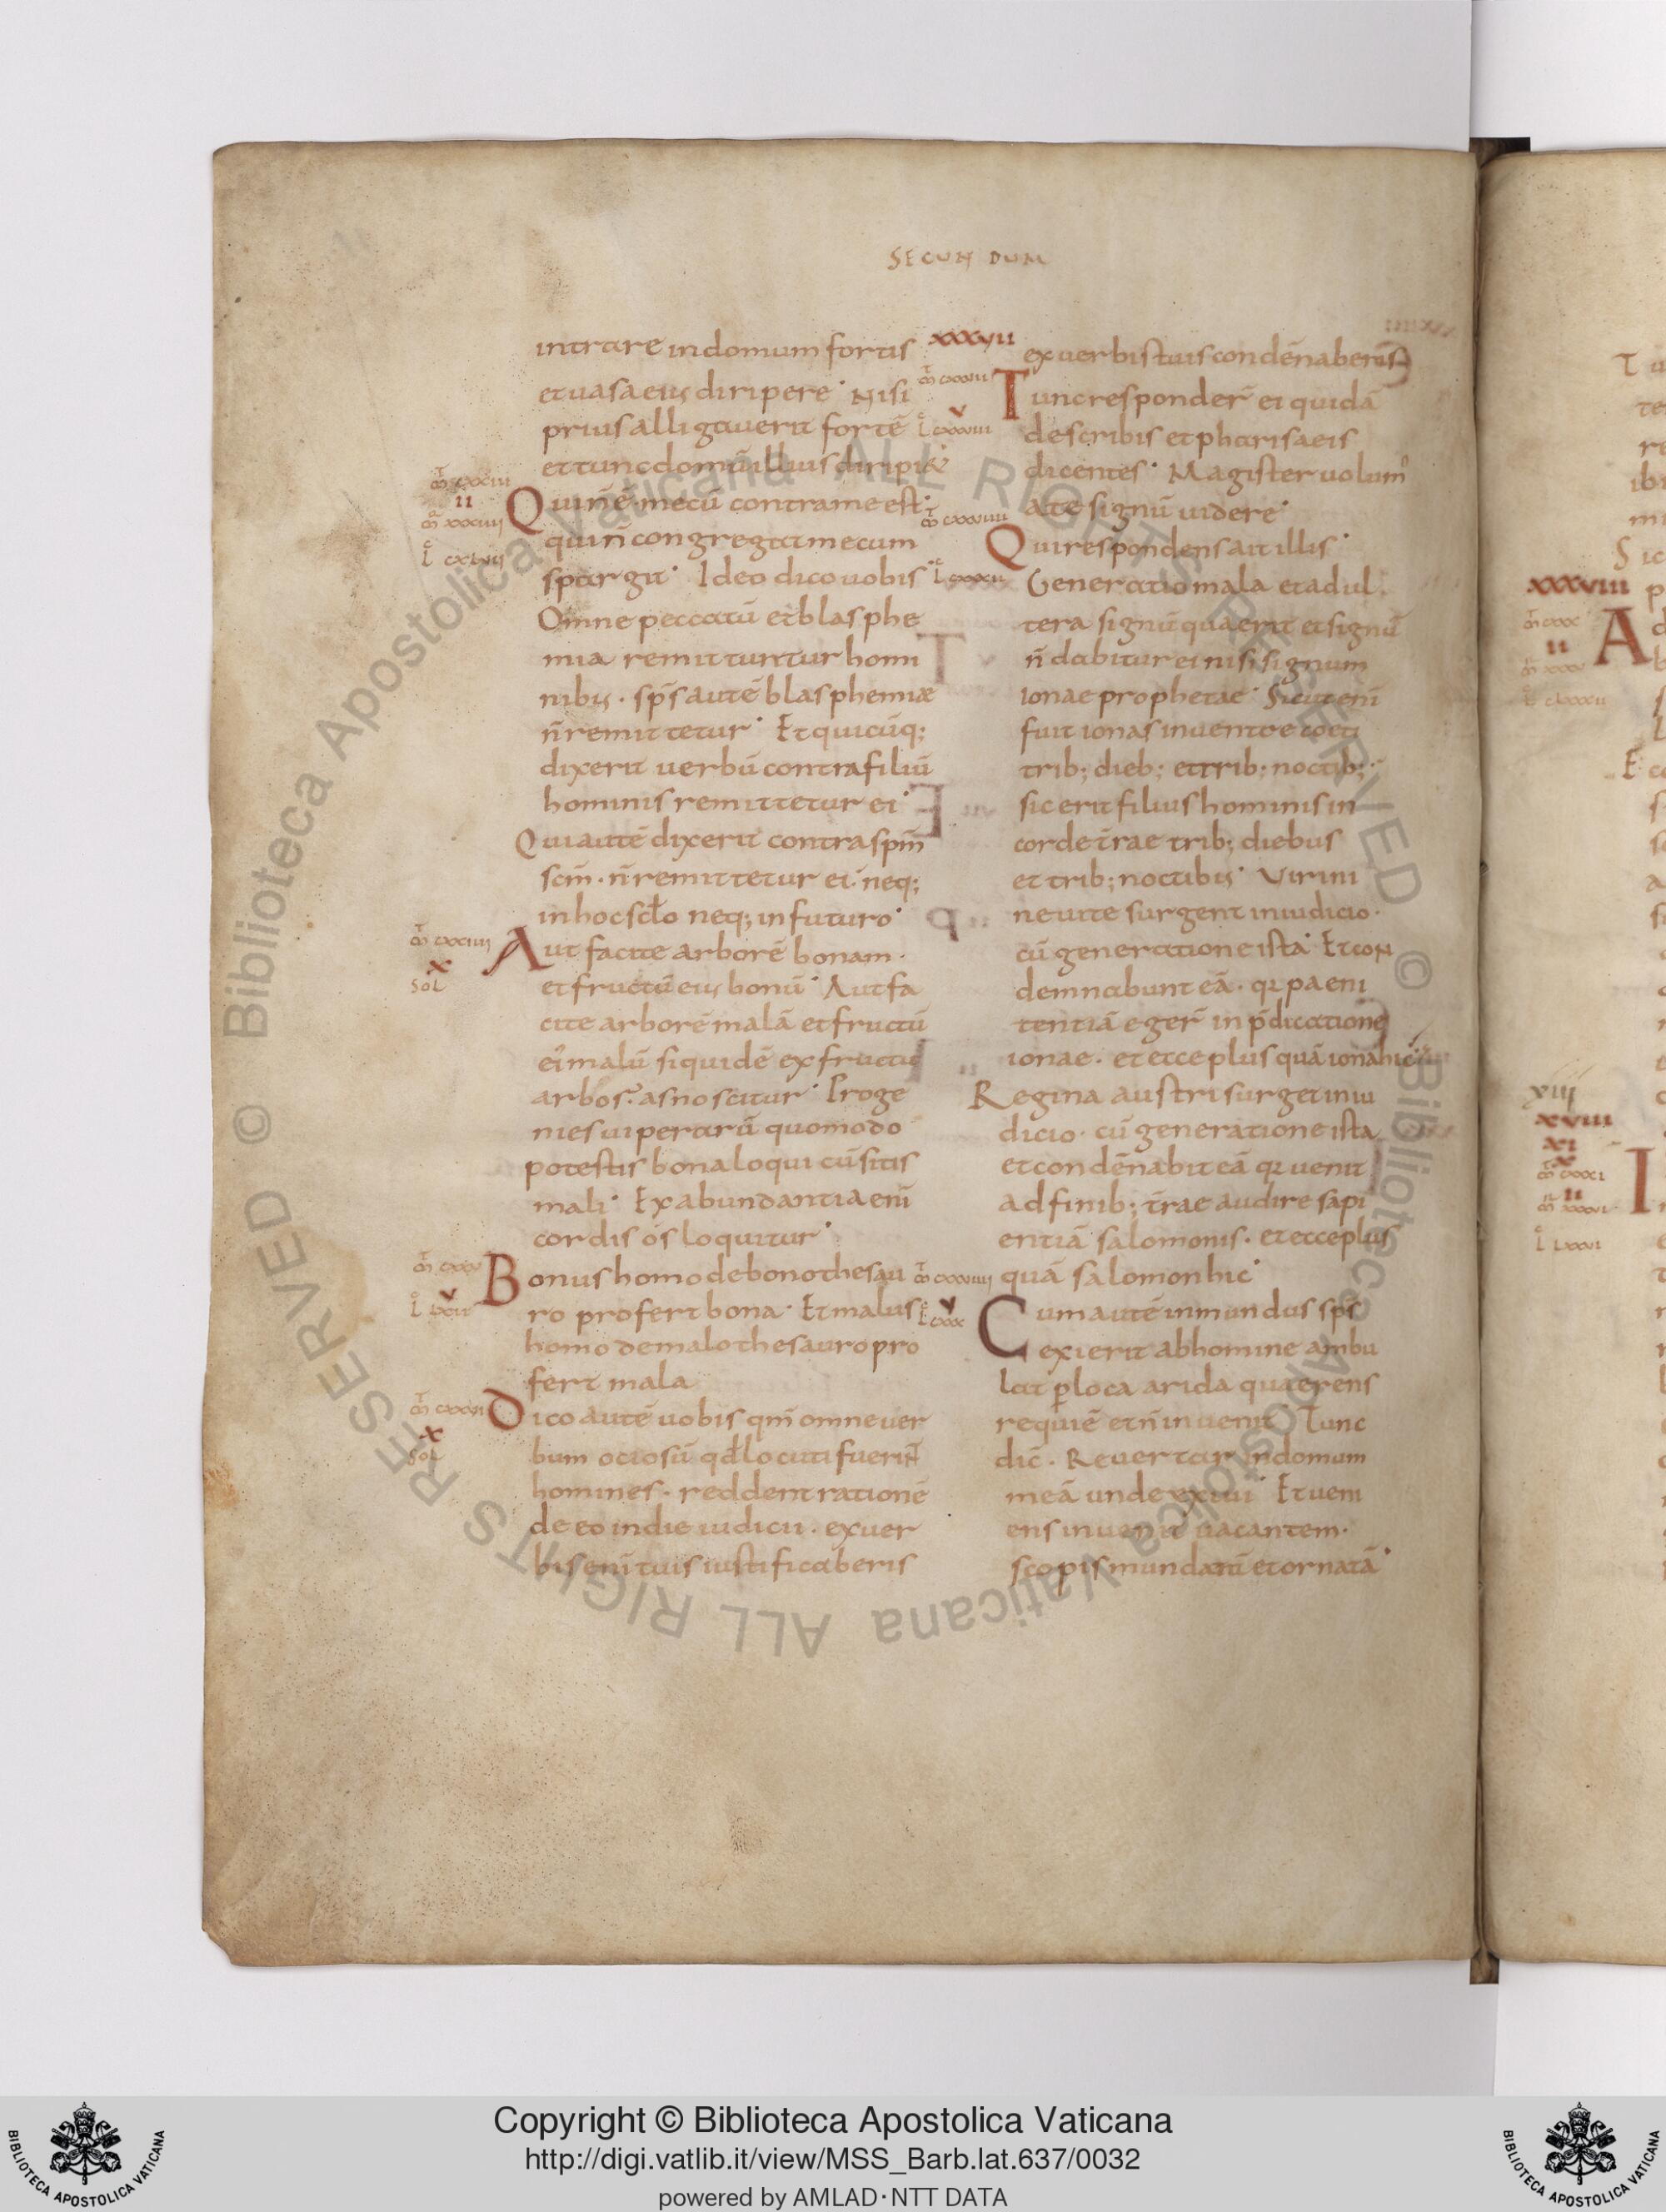 SECUNDUM
intrare in domum fortis
et uasa eius diripere· Nisi
prius alligauerit fortē
et tunc domū illius diripi&·
Qui ñ ē· mecū contra me est·
qui ñ congregat mecum
spargit· Ideo dico uobis·
Omne peccatū et blasphe
mia remittuntur homi
nibus· sp̄s autē blasphemiæ
ñ remittetur· Et quicūq;
dixerit uerbū contra filiū
hominis remittetur ei·
Qui autē dixerit contra sp̄m
scm̄· ñ remittetur ei· neq;
in hoc scło neq; in futuro·
Aut facite arborē bonam·
et fructū eius bonū· Aut fa
cite arborē malā et fructū
ei' malū siquidē ex fructu
arbos asnoscitur· Proge
nies uiperarū quomodo
potestis bona loqui cū sitis
mali· Ex abundantia enī
cordis os loquitur·
Bonus homo de bono thesau
ro profert bona· Et malus
homo de malo thesauro pro
fert mala
Dico autē uobis qm̄ omne uer
bum ociosū qđ locuti fuerin̄
homines· reddent rationē
de eo in die iudicii· ex uer
bis enī tuis iustificaberis
XXXVII
ex uerbis tuis condēnaberis
Tunc responder̄ ei quidā
de scribis et pharisaeis
dicentes· Magister uolum'
a te signū uidere·
Qui respondens ait illis·
Generatio mala et adul
tera signū quaerit et signū
ñ dabitur ei nisi signum
ionae prophetae· Sicut enī
fuit ionas in uentre coeti
trib; dieb; et trib; noctib;·
sic erit filius hominis in
corde t̄rae trib; diebus
et trib; noctibus· Uiri ni
neuite surgent in iudicio·
cū generatione ista· Et con
demnabunt eā· qr paeni
tentiā eger̄ in p̄dicatione
ionae· et ecce plus quā iona hic·
Regina austri surget in iu
dicio· cū generatione ista
et condēnabit eā qr uenit
ad finib; t̄rae audire sapi
entiā salomonis· et ecce plus
quā salomon hic·
Cum autē inmundus sp̄s
exierit ab homine ambu
lat p loca arida quaerens
requiē et ñ inuenit Tunc
dic̄· Reuertar in domum
meā unde exiui· Et ueni
ens inuenit uacantem·
scopis mundatū et ornatā·
XXXVIII
Copyright © Biblioteca Apostolica Vaticana
http://digi.vatlib.it/view/MSS_Barb.lat.637/0032
powered by AMLAD·NTT DATA
BIBLIOTECA APOSTOLICA VATICANA
BIBLIOTECA APOSTOLICA VATICANA